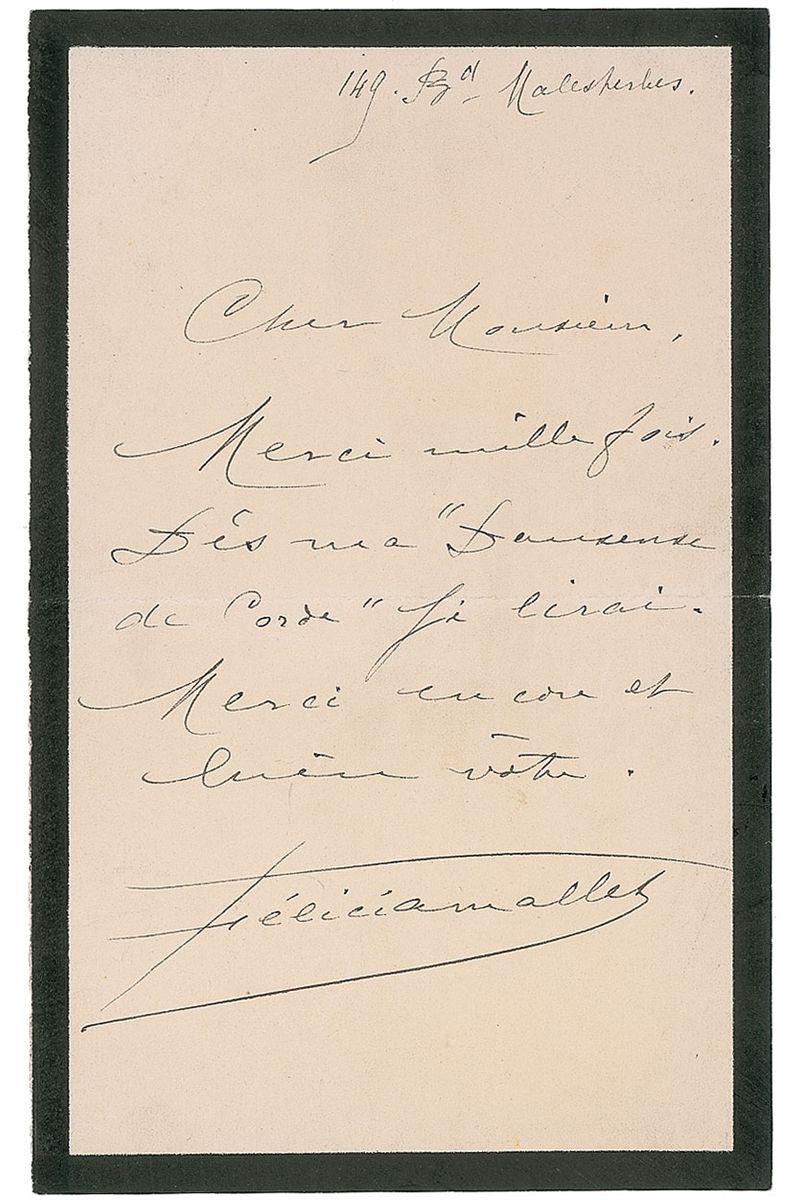 149. Bd Malesherbes.
Cher Monsieur,
Merci mille fois.
Dés ma "Danseuse
de Corde" je lirai.
Merci encore et
bien vôtre.
Féliciamallet